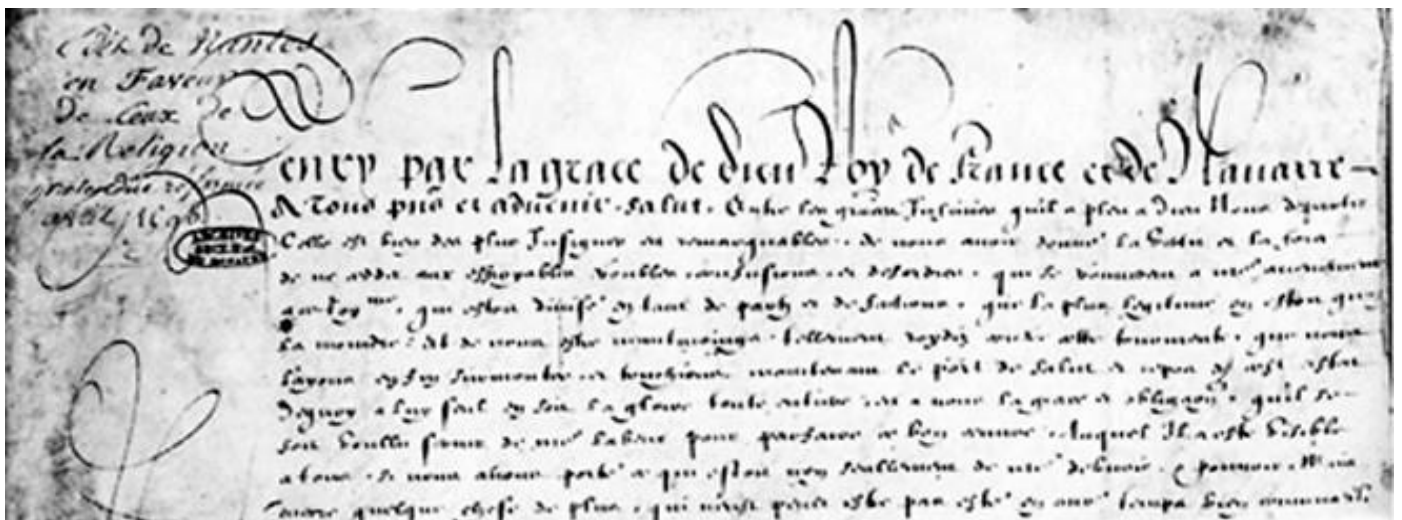 Edit de Nantes
en Faveur
de Ceux de
la Religion
pretendue reformée
avril 1598
ARCHIVES
enry par la grace de dieu Roy de France et de Navarre
A Tous pñs et advenir. Salut. Entre les graces Infinies qu'il a pleu a Dieu Nous departir
Celle est bien des plus Insignes et remarquables. de nous avoir donné la vertu et la force
de ne ceder aux effroyables troubles, confusions et desordres. qui se trouverent a nrē advenement
a ce Royme. qui estoit divisé en tant de partz et de factions. que la plus legitime en estoit quasi
la moindre. Et de nous estre neantmoings tellement roydiz contre ceste tourmente. que nous
l'ayons enfin surmontée. et touchions maintenant le port de salut et repos de cest estat
Dequoy a luy seul en soit la gloire toute entiere. et a nous la grace et obligaōn. qu'il se
soit voullu servir de nrē labeur pour parfaire ce bon œuvre. Auquel Il a esté visible
a tous. si nous avons porté ce qui estoit non seullement de nrē debvoir. & pouvoir. Mais
encore quelque chose de plus. qui n'eust peut estre pas esté en autre temps bien convenable